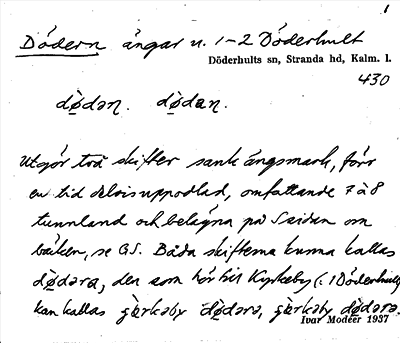 1
Dödern ängar n. 1-2 Döderhult
Döderhults sn, Stranda hd, Kalm. l.
430
dø̀dən. dø̀dan.
Utgör två skiften sank ängsmark, förr
en tid delvis uppodlad, omfattande 7 à 8
tunnland och belägna på S sidan om
bäcken, se GS. Båda skiftena kunna kallas
dø̀dərə, den som hör till Kyrkeby (: 1 Döderhult)
kan kallas çə̀rkəby dø̀dərə, çə̀rkəby dø̀dərə.
Ivar Modéer 1937